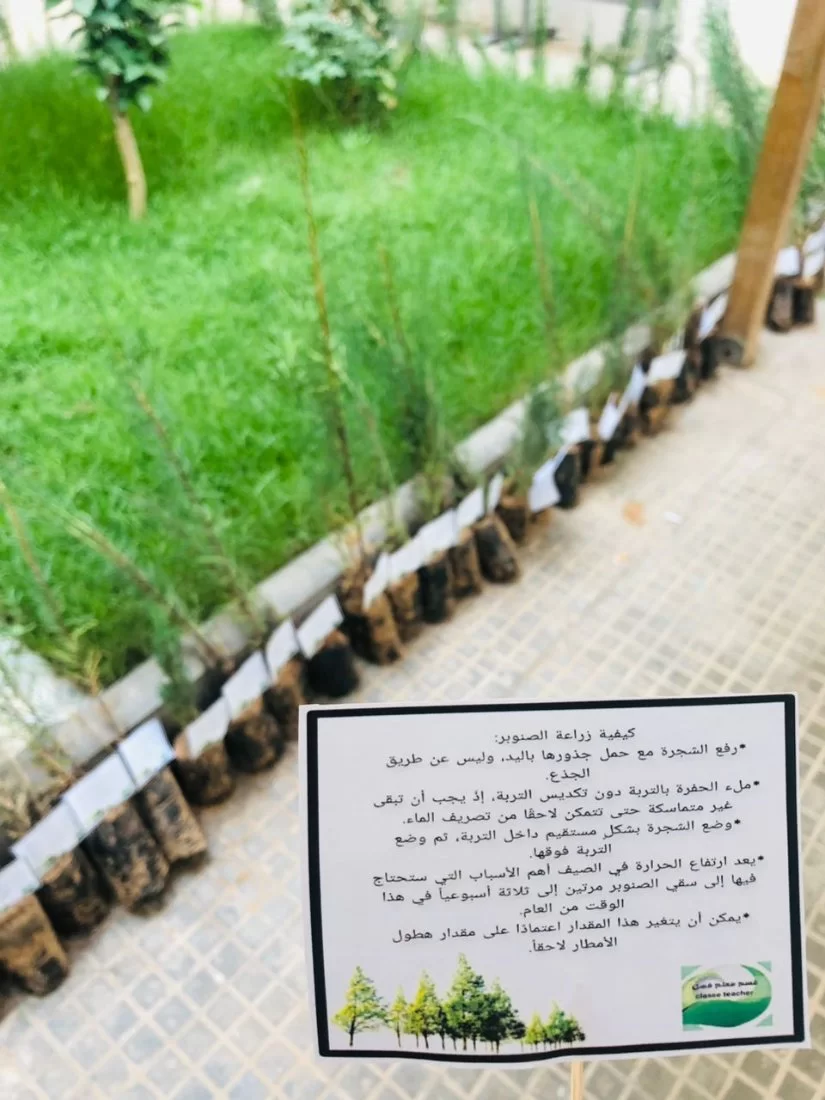 كيفية زراعة الصنوبر:
*رفع الشجرة مع حمل جذورها باليد، وليس عن طريق
الجذع.
*ملء الحفرة بالتربة دون تكديس التربة، إذ يجب أن تبقى
غير متماسكة حتى تتمكن لاحقًا من تصريف الماء.
*وضع الشجرة بشكلٍ مستقيم داخل التربة، ثم وضع
التربة فوقها.
*يعد ارتفاع الحرارة في الصيف أهم الأسباب التي ستحتاج
فيها إلى سقي الصنوبر مرتين إلى ثلاثة أسبوعياً في هذا
الوقت من العام.
*يمكن أن يتغير هذا المقدار اعتمادًا على مقدار هطول
الأمطار لاحقاً.
قسم معلم فصل
classe teacher